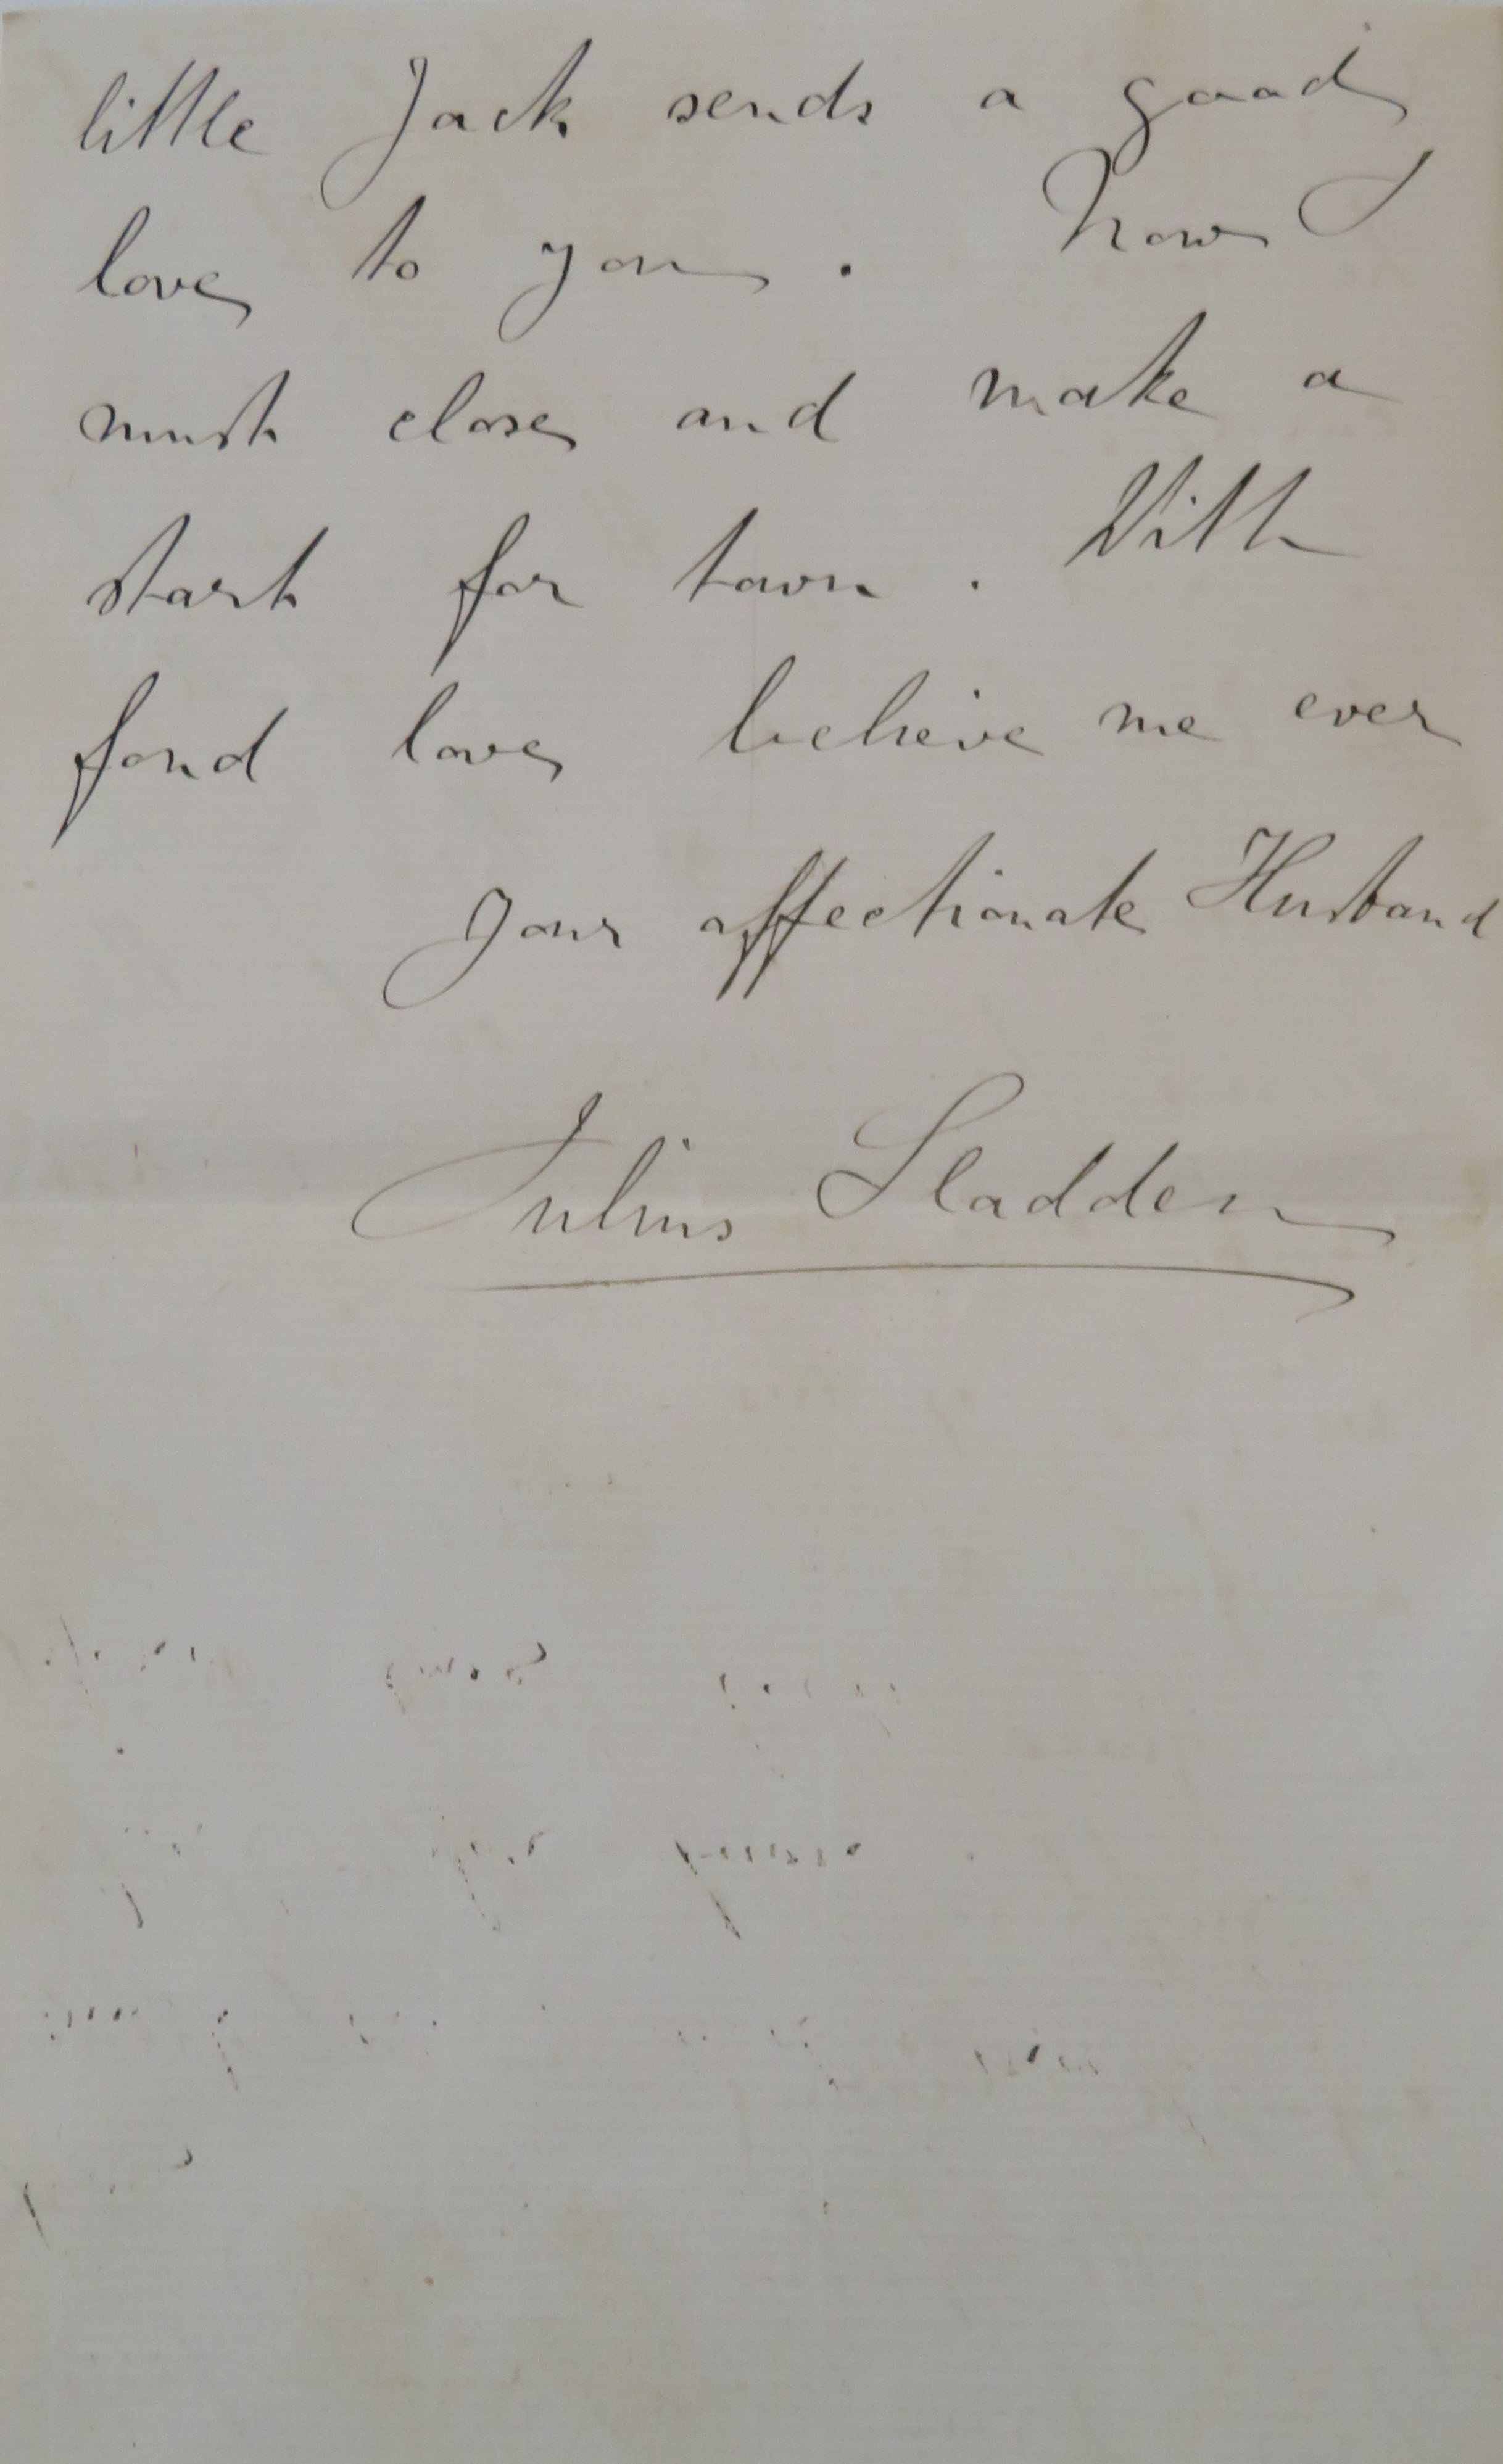 little Jack sends a good
love to you. Now I
must close and make a
start for town. With
fond love believe me ever
Your affectionate Husband
Julius Sladden